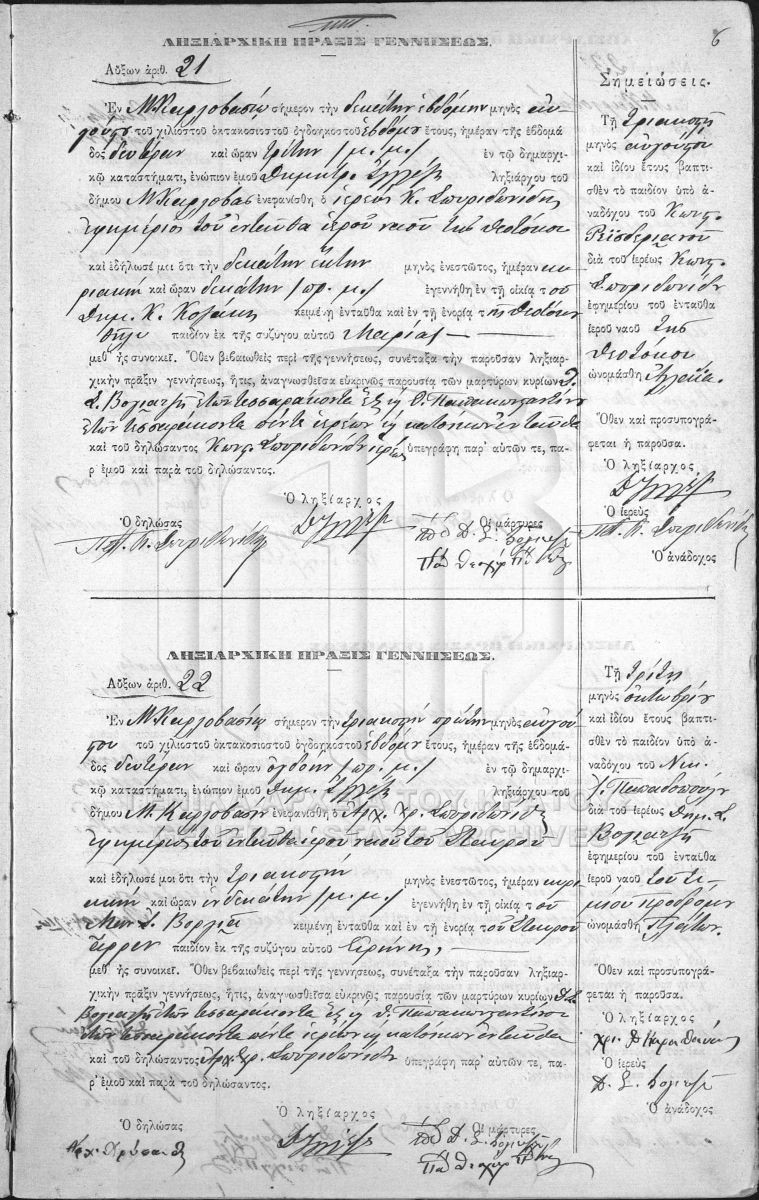 6
ΛΗΞΙΑΡΧΙΚΗ ΠΡΑΞΙΣ ΓΕΝΝΗΣΕΩΣ.
Αὔξων ἀριθ. 21
Ἐν Μ Καρλοβασίῳ σήμερον τὴν δεκάτην ἑβδόμην μηνὸς αὐ-
γούστου τοῦ χιλιοστοῦ ὀκτακοσιοστοῦ ὀγδοηκοστοῦ ἑβδόμου ἔτους, ἡμέραν τῆς ἑβδομά-
δος δευτέραν καὶ ὥραν τρίτην /μ.μ./ ἐν τῷ δημαρχι-
κῷ καταστήματι, ἐνώπιον ἐμοῦ Δημητρ. ληξιάρχου τοῦ
δήμου Μ Καρλοβασ ἐνεφανίσθη ὁ ἱερεὺς Κ. Σπυριδωνίδης
ἐφημέριος τοῦ ἐνταῦθα ἱεροῦ ναοῦ τῆς Θεοτόκου
καὶ ἐδήλωσέ μοι ὅτι τὴν δεκάτην ἕκτην μηνὸς ἐνεστῶτος, ἡμέραν κυ-
ριακὴν καὶ ὥραν δεκάτην /πρ. μ./ ἐγεννήθη ἐν τῇ οἰκίᾳ τοῦ
Δημ. Κ. κειμένῃ ἐνταῦθα καὶ ἐν τῇ ἐνορίᾳ τῆς Θεοτόκου
θῆλυ παιδίον ἐκ τῆς συζύγου αὐτοῦ Μαρίας
μεθ' ἧς συνοικεῖ. Ὅθεν βεβαιωθεὶς περὶ τῆς γεννήσεως, συνέταξα τὴν παροῦσαν ληξιαρ-
χικὴν πρᾶξιν γεννήσεως, ἥτις, ἀναγνωσθεῖσα εὐκρινῶς παρουσίᾳ τῶν μαρτύρων κυρίων Δ.
Σ. Βογιατζῆ ἐτῶν τεσσαράκοντα ἓξ κ Θ. Παπακωνσταντίνου
ἐτῶν τεσσαράκοντα πέντε ἱερέων κ κατοίκων ἐνταῦθα
καὶ τοῦ δηλώσαντος Κωνσ. Σπυριδωνίδη ἱερέως ὑπεγράφη παρ' αὐτῶν τε, πα-
ρ' ἐμοῦ καὶ παρὰ τοῦ δηλώσαντος.
Ὁ ληξίαρχος
Ὁ δηλώσας
Οἱ μάρτυρες
Παπ. Κ. Σπυριδωνίδης
Σημειώσεις.
Τῇ τριακοστῇ
μηνὸς αὐγούστου
καὶ ἰδίου ἔτους βαπτι-
σθὲν τὸ παιδίον ὑπὸ ἀ-
ναδόχου τοῦ Κωνσ.
διὰ τοῦ ἱερέως Κωνσ.
Σπυριδωνίδη
ἐφημερίου τοῦ ἐνταῦθα
ἱεροῦ ναοῦ τῆς
Θεοτόκου
ὠνομάσθη
Ὅθεν καὶ προσυπογρά-
φεται ἡ παροῦσα.
Ὁ ληξίαρχος
Ὁ ἱερεὺς
Παπ. Κ. Σπυριδωνίδης
Ὁ ἀνάδοχος
ΛΗΞΙΑΡΧΙΚΗ ΠΡΑΞΙΣ ΓΕΝΝΗΣΕΩΣ.
Αὔξων ἀριθ. 22
Ἐν Μ Καρλοβασίῳ σήμερον τὴν τριακοστὴν πρώτην μηνὸς αὐγού-
στου τοῦ χιλιοστοῦ ὀκτακοσιοστοῦ ὀγδοηκοστοῦ ἑβδόμου ἔτους, ἡμέραν τῆς ἑβδομά-
δος δευτέραν καὶ ὥραν ὀγδόην /πρ. μ./ ἐν τῷ δημαρχι-
κῷ καταστήματι, ἐνώπιον ἐμοῦ Δημ. ληξιάρχου τοῦ
δήμου Μ. Καρλοβασίων ἐνεφανίσθη ὁ Ἀρχ. Χρ. Σπυριδωνίδης
ἐφημέριος τοῦ ἐνταῦθα ἱεροῦ ναοῦ τοῦ Σταυροῦ
καὶ ἐδήλωσέ μοι ὅτι τὴν τριακοστὴν μηνὸς ἐνεστῶτος, ἡμέραν κυρι-
ακὴν καὶ ὥραν ἑνδεκάτην /μ. μ./ ἐγεννήθη ἐν τῇ οἰκίᾳ τοῦ
κειμένῃ ἐνταῦθα καὶ ἐν τῇ ἐνορίᾳ τοῦ Σταυροῦ
ἄρρεν παιδίον ἐκ τῆς συζύγου αὐτοῦ Εἰρήνης,
μεθ' ἧς συνοικεῖ. Ὅθεν βεβαιωθεὶς περὶ τῆς γεννήσεως, συνέταξα τὴν παροῦσαν ληξιαρ-
χικὴν πρᾶξιν γεννήσεως, ἥτις, ἀναγνωσθεῖσα εὐκρινῶς παρουσίᾳ τῶν μαρτύρων κυρίων Δ. Σ.
Βογιατζῆ ἐτῶν τεσσαράκοντα ἓξ κ Θ. Παπακωνσταντίνου
ἐτῶν τεσσαράκοντα πέντε ἱερέων κ κατοίκων ἐνταῦθα
καὶ τοῦ δηλώσαντος Ἀρχ. Χρ. Σπυριδωνίδη ὑπεγράφη παρ' αὐτῶν τε, πα-
ρ' ἐμοῦ καὶ παρὰ τοῦ δηλώσαντος.
Ὁ ληξίαρχος
Ὁ δηλώσας
Οἱ μάρτυρες
Τῇ τρίτῃ
μηνὸς ὀκτωβρίου
καὶ ἰδίου ἔτους βαπτι-
σθὲν τὸ παιδίον ὑπὸ ἀ-
ναδόχου τοῦ Νικ.
Παπαδοπούλου
διὰ τοῦ ἱερέως Δημ. Σ.
Βογιατζῆ
ἐφημερίου τοῦ ἐνταῦθα
ἱεροῦ ναοῦ τοῦ τι-
μίου προδρόμου
ὠνομάσθη Πλάτων.
Ὅθεν καὶ προσυπογρά-
φεται ἡ παροῦσα.
Ὁ ληξίαρχος
Ὁ ἱερεὺς
Δ. Σ. Βογιατζῆς
Ὁ ἀνάδοχος
ΓΕΝΙΚΑ ΑΡΧΕΙΑ ΤΟΥ ΚΡΑΤΟΥΣ
GENERAL STATE ARCHIVES